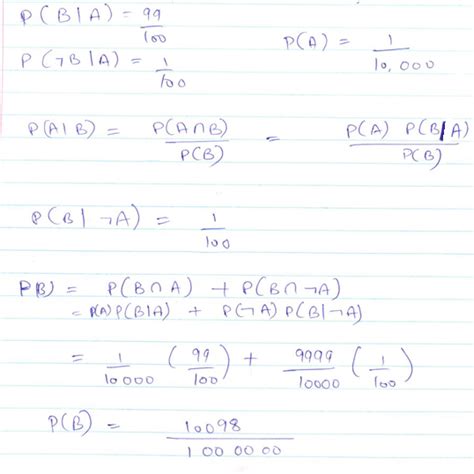 P(B|A) = 99/100
P(¬B|A) = 1/100
P(A) = 1/10,000
P(A|B) = P(A∩B)/P(B) = P(A) P(B|A)/P(B)
P(B|¬A) = 1/100
P(B) = P(B∩A) + P(B∩¬A)
= P(A)P(B|A) + P(¬A)P(B|¬A)
= 1/10000 (99/100) + 9999/10000 (1/100)
P(B) = 10098/1000000